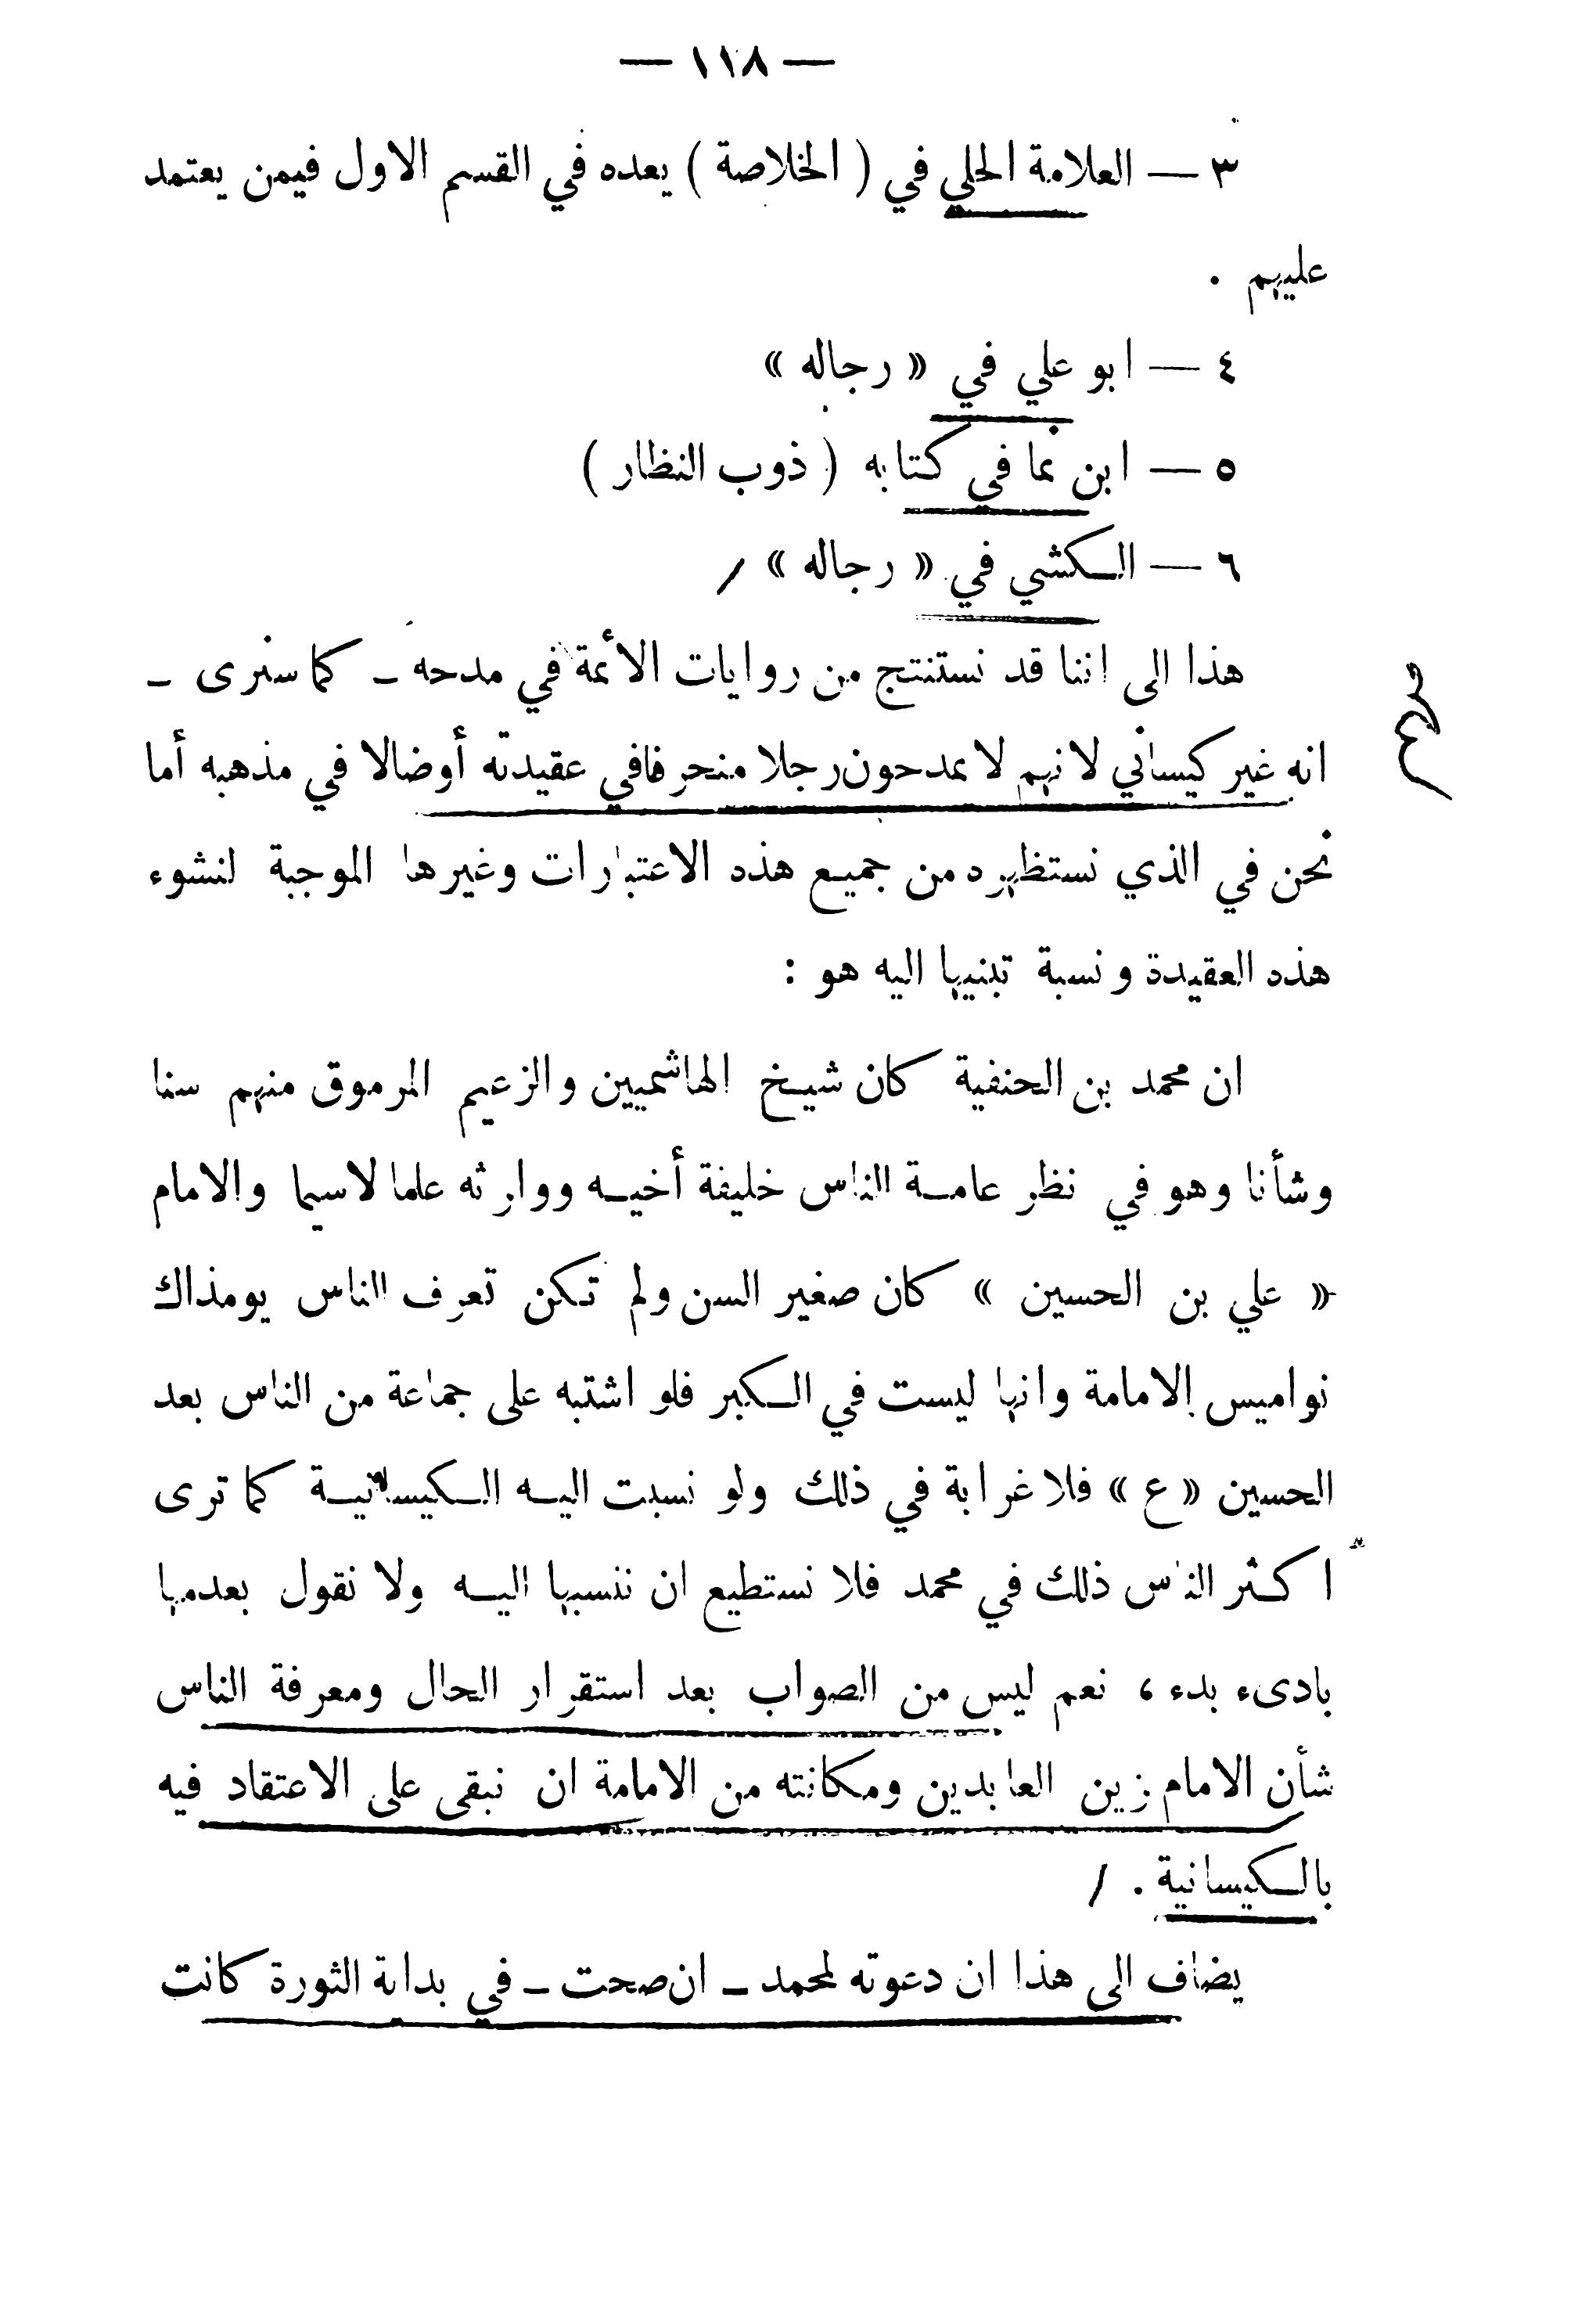 — ١١٨ —
٣ — العلامة الحلي في ( الخلاصة ) يعده في القسم الاول فيمن يعتمد
عليهم .
٤ — ابو علي في « رجاله »
٥ — ابن نما في كتابه ( ذوب النظار )
٦ — الكشي في « رجاله » /
هذا الى اننا قد نستنتج من روايات الأئمة في مدحه ـ كما سنرى ـ
انه غير كيساني لانهم لا يمدحون رجلا منحرفا في عقيدته أو ضالا في مذهبه أما
نحن في الذي نستظهره من جميع هذه الاعتبارات وغيرها الموجبة لنشوء
هذه العقيدة ونسبة تبنيها اليه هو :
ان محمد بن الحنفية كان شيخ الهاشميين والزعيم المرموق منهم سنا
وشأنا وهو في نظر عامة الناس خليفة أخيه ووارثه علما لاسيما والامام
« علي بن الحسين » كان صغير السن ولم تكن تعرف الناس يومذاك
نواميس الامامة وانها ليست في الكبر فلو اشتبه على جماعة من الناس بعد
الحسين « ع » فلا غرابة في ذلك ولو نسبت اليه الكيسانية كما ترى
اكثر الناس ذلك في محمد فلا نستطيع ان ننسبها اليه ولا نقول بعدمها
بادىء بدء ، نعم ليس من الصواب بعد استقرار الحال ومعرفة الناس
شأن الامام زين العابدين ومكانته من الامامة ان نبقى على الاعتقاد فيه
بالكيسانية . /
يضاف الى هذا ان دعوته لمحمد ـ ان صحت ـ في بداية الثورة كانت